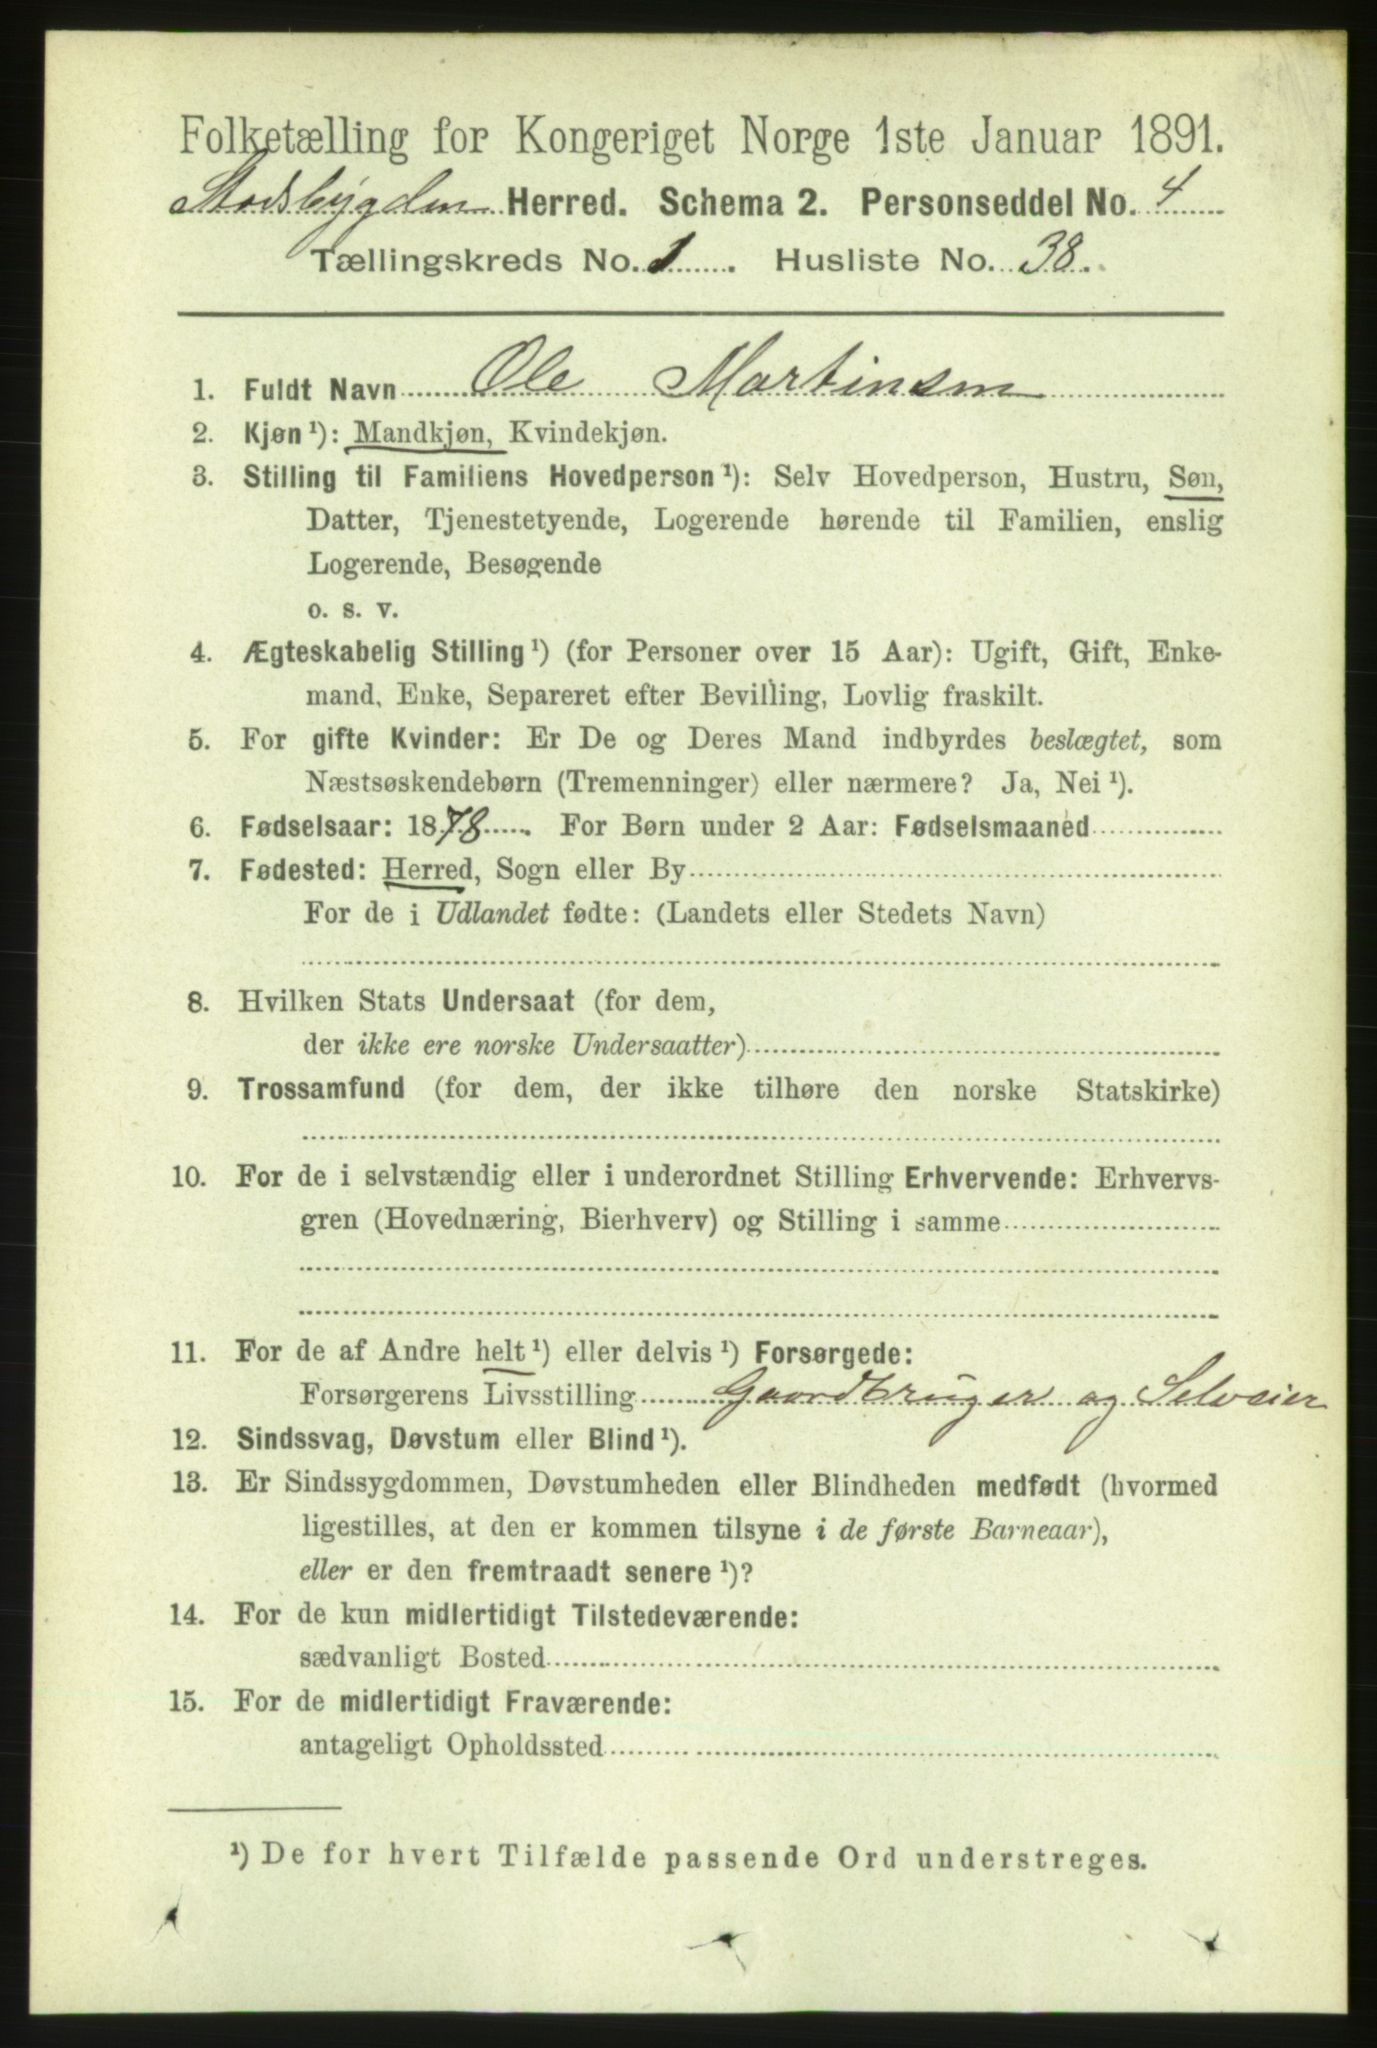 Folketælling for Kongeriget Norge 1ste Januar 1891.
Stadsbygden Herred. Schema 2. Personseddel No. 4
Tællingskreds No. 1. Husliste No. 38.
1. Fuldt Navn Ole Martinsen
2. Kjøn¹): Mandkjøn, Kvindekjøn.
3. Stilling til Familiens Hovedperson¹): Selv Hovedperson, Hustru, Søn,
Datter, Tjenestetyende, Logerende hørende til Familien, enslig
Logerende, Besøgende
o. s. v.
4. Ægteskabelig Stilling¹) (for Personer over 15 Aar): Ugift, Gift, Enke-
mand, Enke, Separeret efter Bevilling, Lovlig fraskilt.
5. For gifte Kvinder: Er De og Deres Mand indbyrdes beslægtet, som
Næstsøskendebørn (Tremenninger) eller nærmere? Ja, Nei¹).
6. Fødselsaar: 1878. For Børn under 2 Aar: Fødselsmaaned
7. Fødested: Herred, Sogn eller By
For de i Udlandet fødte: (Landets eller Stedets Navn)
8. Hvilken Stats Undersaat (for dem,
der ikke ere norske Undersaatter)
9. Trossamfund (for dem, der ikke tilhøre den norske Statskirke)
10. For de i selvstændig eller i underordnet Stilling Erhvervende: Erhvervs-
gren (Hovednæring, Bierhverv) og Stilling i samme
11. For de af Andre helt¹) eller delvis¹) Forsørgede:
Forsørgerens Livsstilling Gaardbruger og Selveier
12. Sindssvag, Døvstum eller Blind¹).
13. Er Sindssygdommen, Døvstumheden eller Blindheden medfødt (hvormed
ligestilles, at den er kommen tilsyne i de første Barneaar),
eller er den fremtraadt senere¹)?
14. For de kun midlertidigt Tilstedeværende:
sædvanligt Bosted
15. For de midlertidigt Fraværende:
antageligt Opholdssted
¹) De for hvert Tilfælde passende Ord understreges.